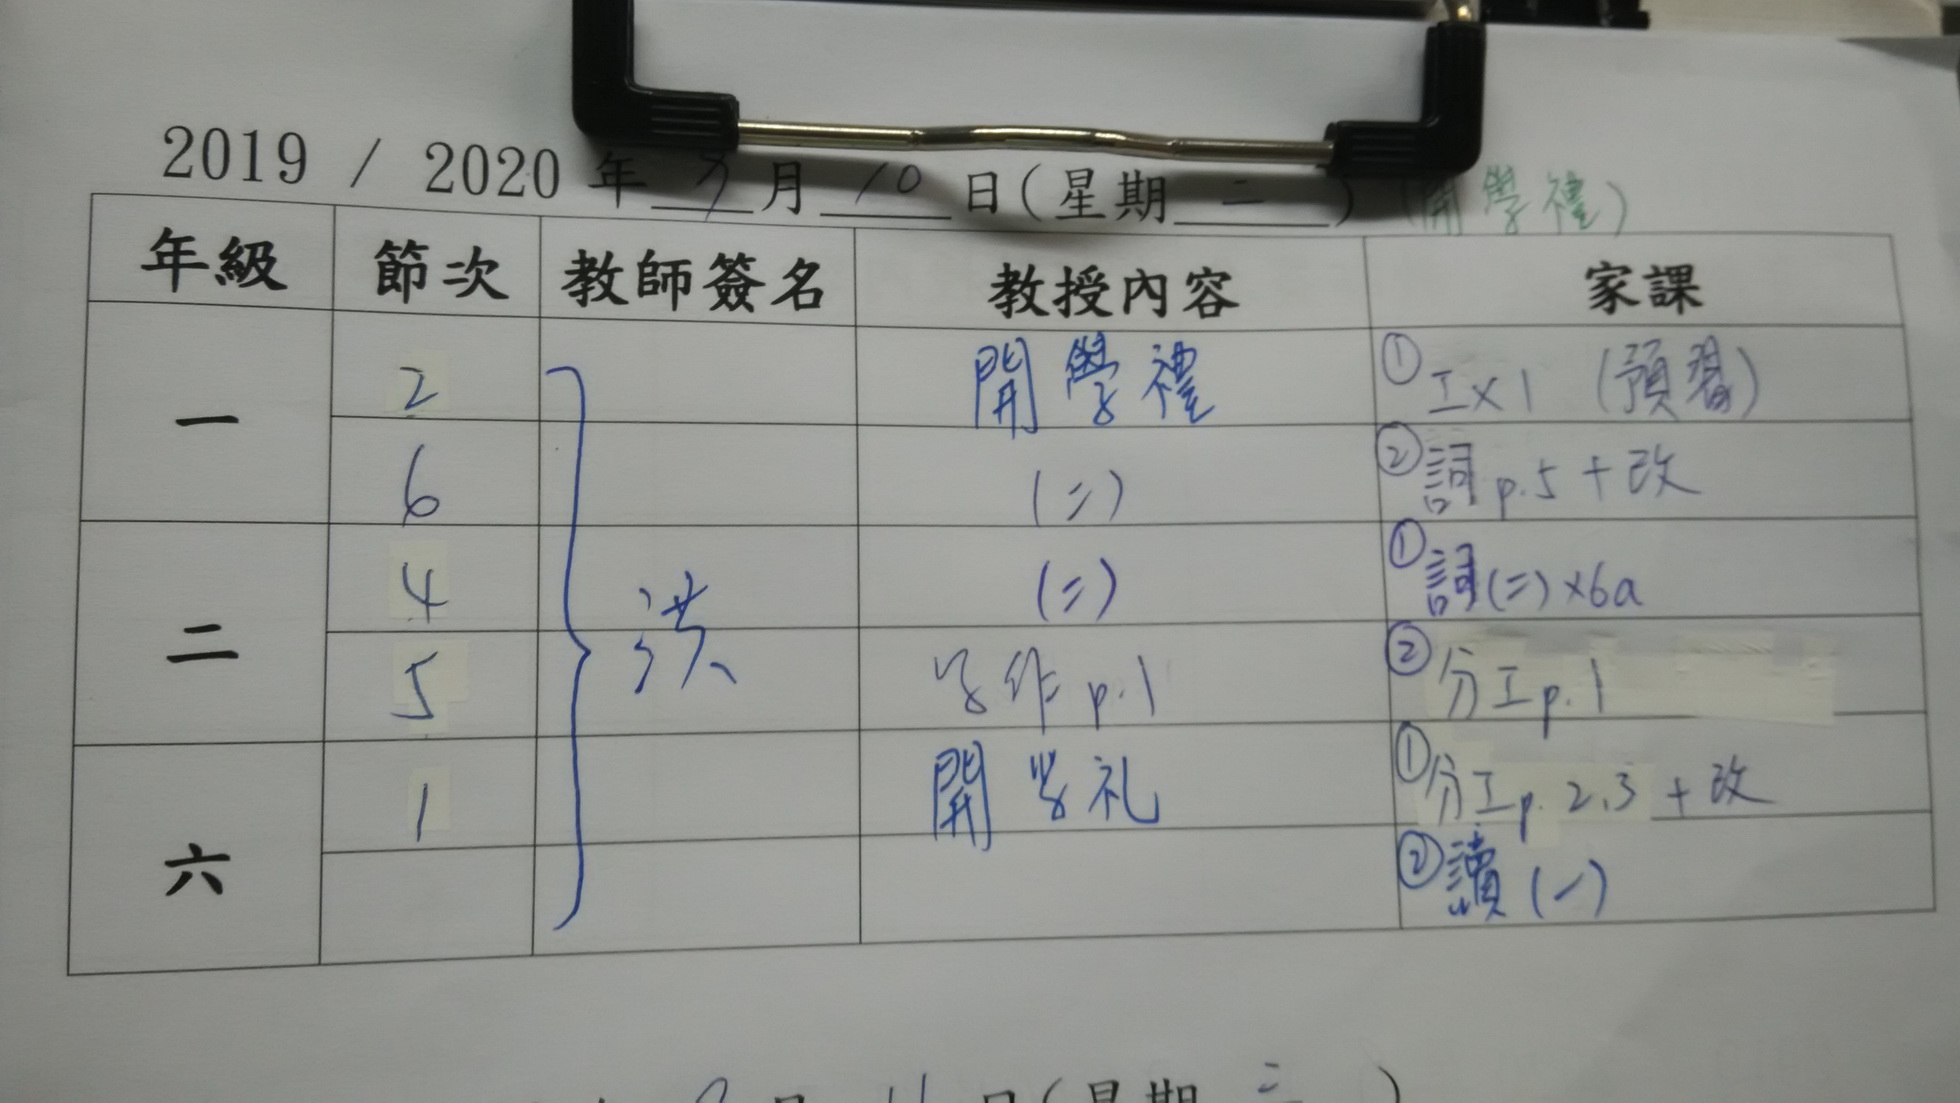 2019 / 2020 年 9 月 10 日(星期 二 ) (開學禮)
年級 節次 教師簽名 教授內容 家課
一 2 開學禮 ① 工x1 (預習)
6 (二) ② 詞 p.5 + 改
二 4 洪 (二) ① 詞(二) x6a
5 写作 p.1 ② 分工 p.1
六 1 開学礼 ① 分工 p.2,3 + 改
② 讀 (一)
9 月 11 日(星期 三 )